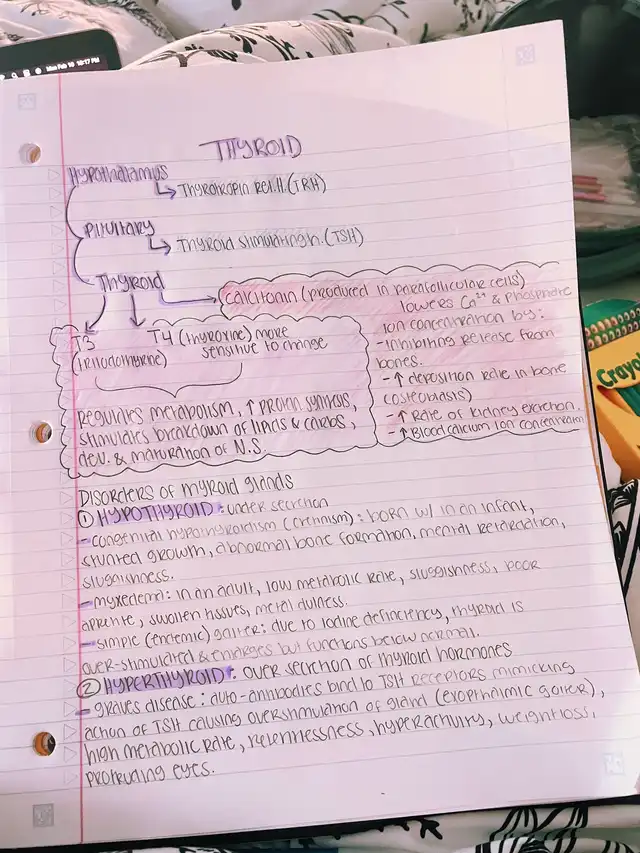 Mon Feb 10 10:17 PM
THYROID
HYPOTHALAMUS
Thyrotropin rel.H.(TRH)
Pituitary
Thyroid stimulating h. (TSH)
Thyroid
calcitonin (produced in parafollicular cells)
lowers Ca²⁺ & Phosphate
ion concentration by:
- inhibiting release from
bones.
- ↑ deposition rate in bone
(osteoblasis)
- ↑ Rate of kidney excretion.
- ↑ Blood calcium ion concentration
T3
(triiodothyrine)
T4 (thyroxine) more
sensitive to change
Regulates metabolism, ↑ protein synthesis,
stimulates breakdown of lipids & carbs,
dev. & maturation of N.S.
Disorders of thyroid glands
① HYPOTHYROID: under secretion
- congenital hypothyroidism (cretinism): born w/ in an infant,
stunted growth, abnormal bone formation, mental retardation,
sluggishness.
- myxedema: in an adult, low metabolic rate, sluggishness, poor
appetite, swollen tissues, metal dulness.
- simple (endemic) goiter: due to iodine definciency, thyroid is
over-stimulated & enlarges but functions below normal.
② HYPERTHYROID: over secretion of thyroid hormones
- graves disease: auto-antibodies bind to TSH receptors mimicking
action of TSH causing overstimulation of gland (exopthalmic goiter),
high metabolic rate, relentlessness, hyperactivity, weightloss,
protruding eyes.
Crayo